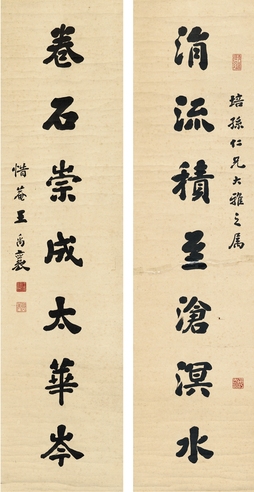 培孫仁兄大雅之属
涓流積至滄溟水
卷石崇成太華岑
惜菴王禹襄